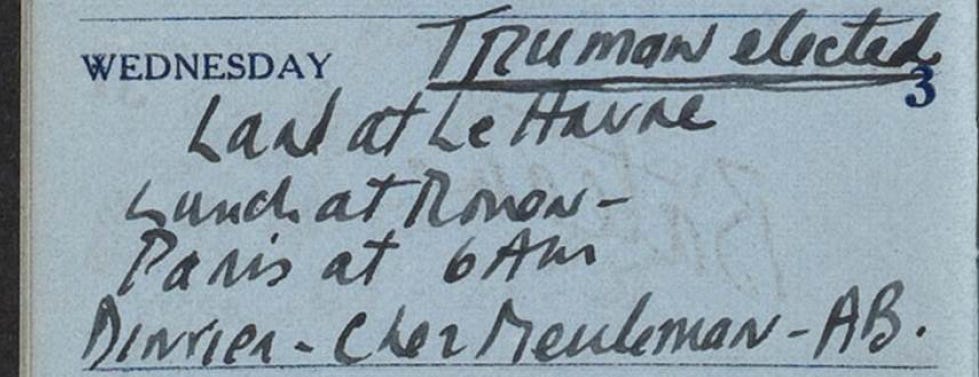 WEDNESDAY Truman elected
3
Land at Le Havre
Lunch at Rouen -
Paris at 6 Am
Dinner - Chez Meuleman - AB.